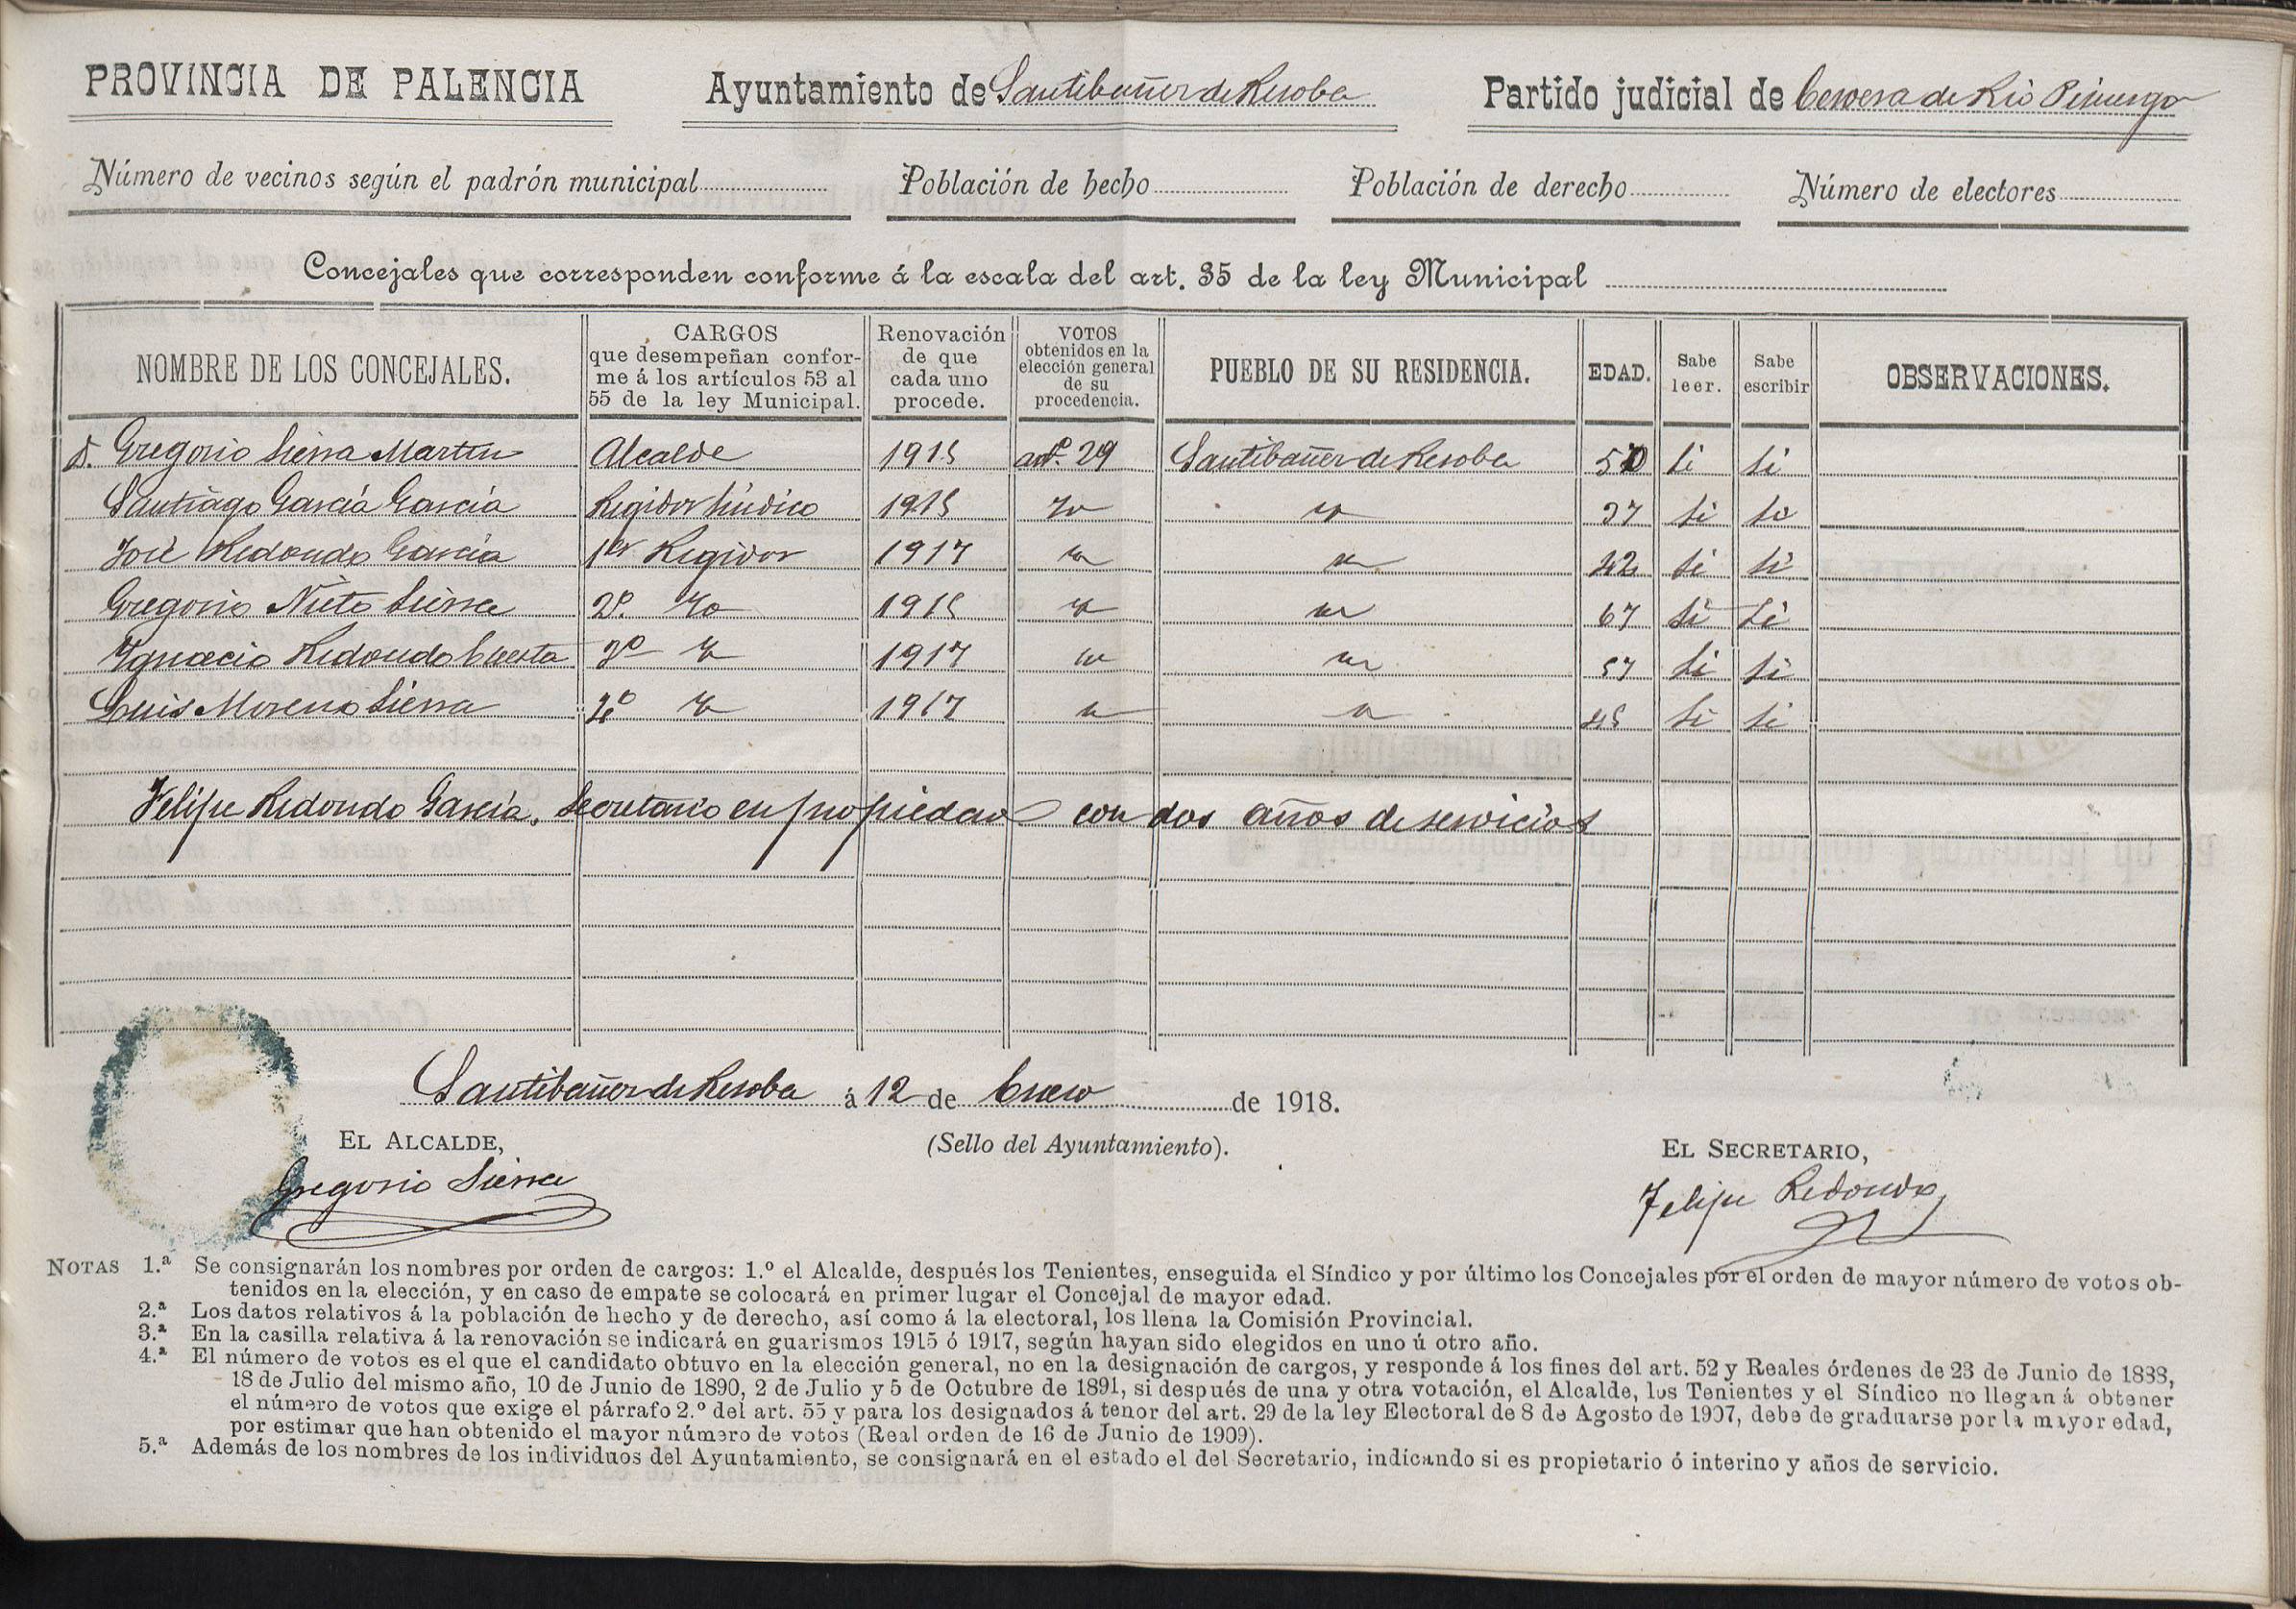 PROVINCIA DE PALENCIA Ayuntamiento de Santibañez de Resoba Partido judicial de Cervera de Rio Pisuerga
Número de vecinos según el padrón municipal Población de hecho Población de derecho Número de electores
Concejales que corresponden conforme á la escala del art. 35 de la ley Municipal
NOMBRE DE LOS CONCEJALES. CARGOS que desempeñan conforme á los artículos 53 al 55 de la ley Municipal. Renovación de que cada uno procede. VOTOS obtenidos en la elección general de su procedencia. PUEBLO DE SU RESIDENCIA. EDAD. Sabe leer. Sabe escribir OBSERVACIONES.
D. Gregorio Sierra Martin Alcalde 1915 artº. 29 Santibañez de Resoba Si Si
Santiago García García Regidor Síndico 1915 37 Si Si
José Redondo García 1er Regidor 1917 42 Si Si
Gregorio Nieto Sierra 2º. 1915 67 Si Si
Ygnacio Redondo Cuesta 3º 1917 57 Si Si
Luis Moreno Sierra 4º 1917 45 Si Si
Felipe Redondo García, Secretario en propiedad con dos años de servicios
Santibañez de Resoba á 12 de Enero de 1918.
EL ALCALDE, (Sello del Ayuntamiento). EL SECRETARIO,
Gregorio Sierra Felipe Redondo
NOTAS 1.ª Se consignarán los nombres por orden de cargos: 1.º el Alcalde, después los Tenientes, enseguida el Síndico y por último los Concejales por el orden de mayor número de votos ob-
tenidos en la elección, y en caso de empate se colocará en primer lugar el Concejal de mayor edad.
2.ª Los datos relativos á la población de hecho y de derecho, así como á la electoral, los llena la Comisión Provincial.
3.ª En la casilla relativa á la renovación se indicará en guarismos 1915 ó 1917, según hayan sido elegidos en uno ú otro año.
4.ª El número de votos es el que el candidato obtuvo en la elección general, no en la designación de cargos, y responde á los fines del art. 52 y Reales órdenes de 23 de Junio de 1888,
18 de Julio del mismo año, 10 de Junio de 1890, 2 de Julio y 5 de Octubre de 1891, si después de una y otra votación, el Alcalde, los Tenientes y el Síndico no llegan á obtener
el número de votos que exige el párrafo 2.º del art. 55 y para los designados á tenor del art. 29 de la ley Electoral de 8 de Agosto de 1907, debe de graduarse por la mayor edad,
por estimar que han obtenido el mayor número de votos (Real orden de 16 de Junio de 1909).
5.ª Además de los nombres de los individuos del Ayuntamiento, se consignará en el estado el del Secretario, indicando si es propietario ó interino y años de servicio.